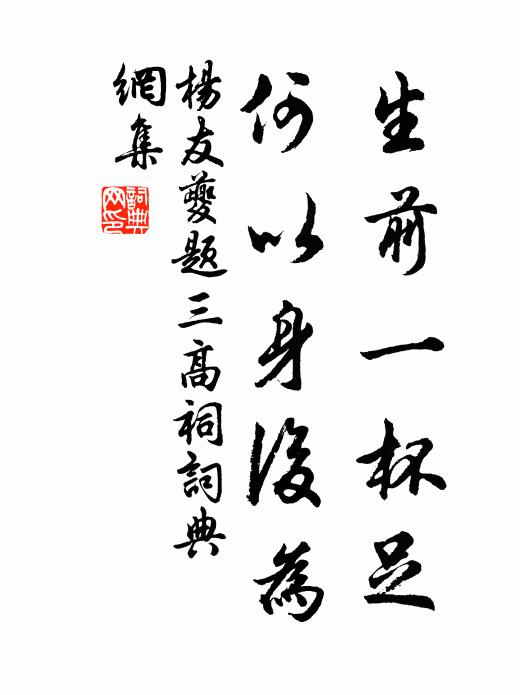 生前一杯足
何以身後為
楊友夔題三高祠詞典
網集
詞典網印